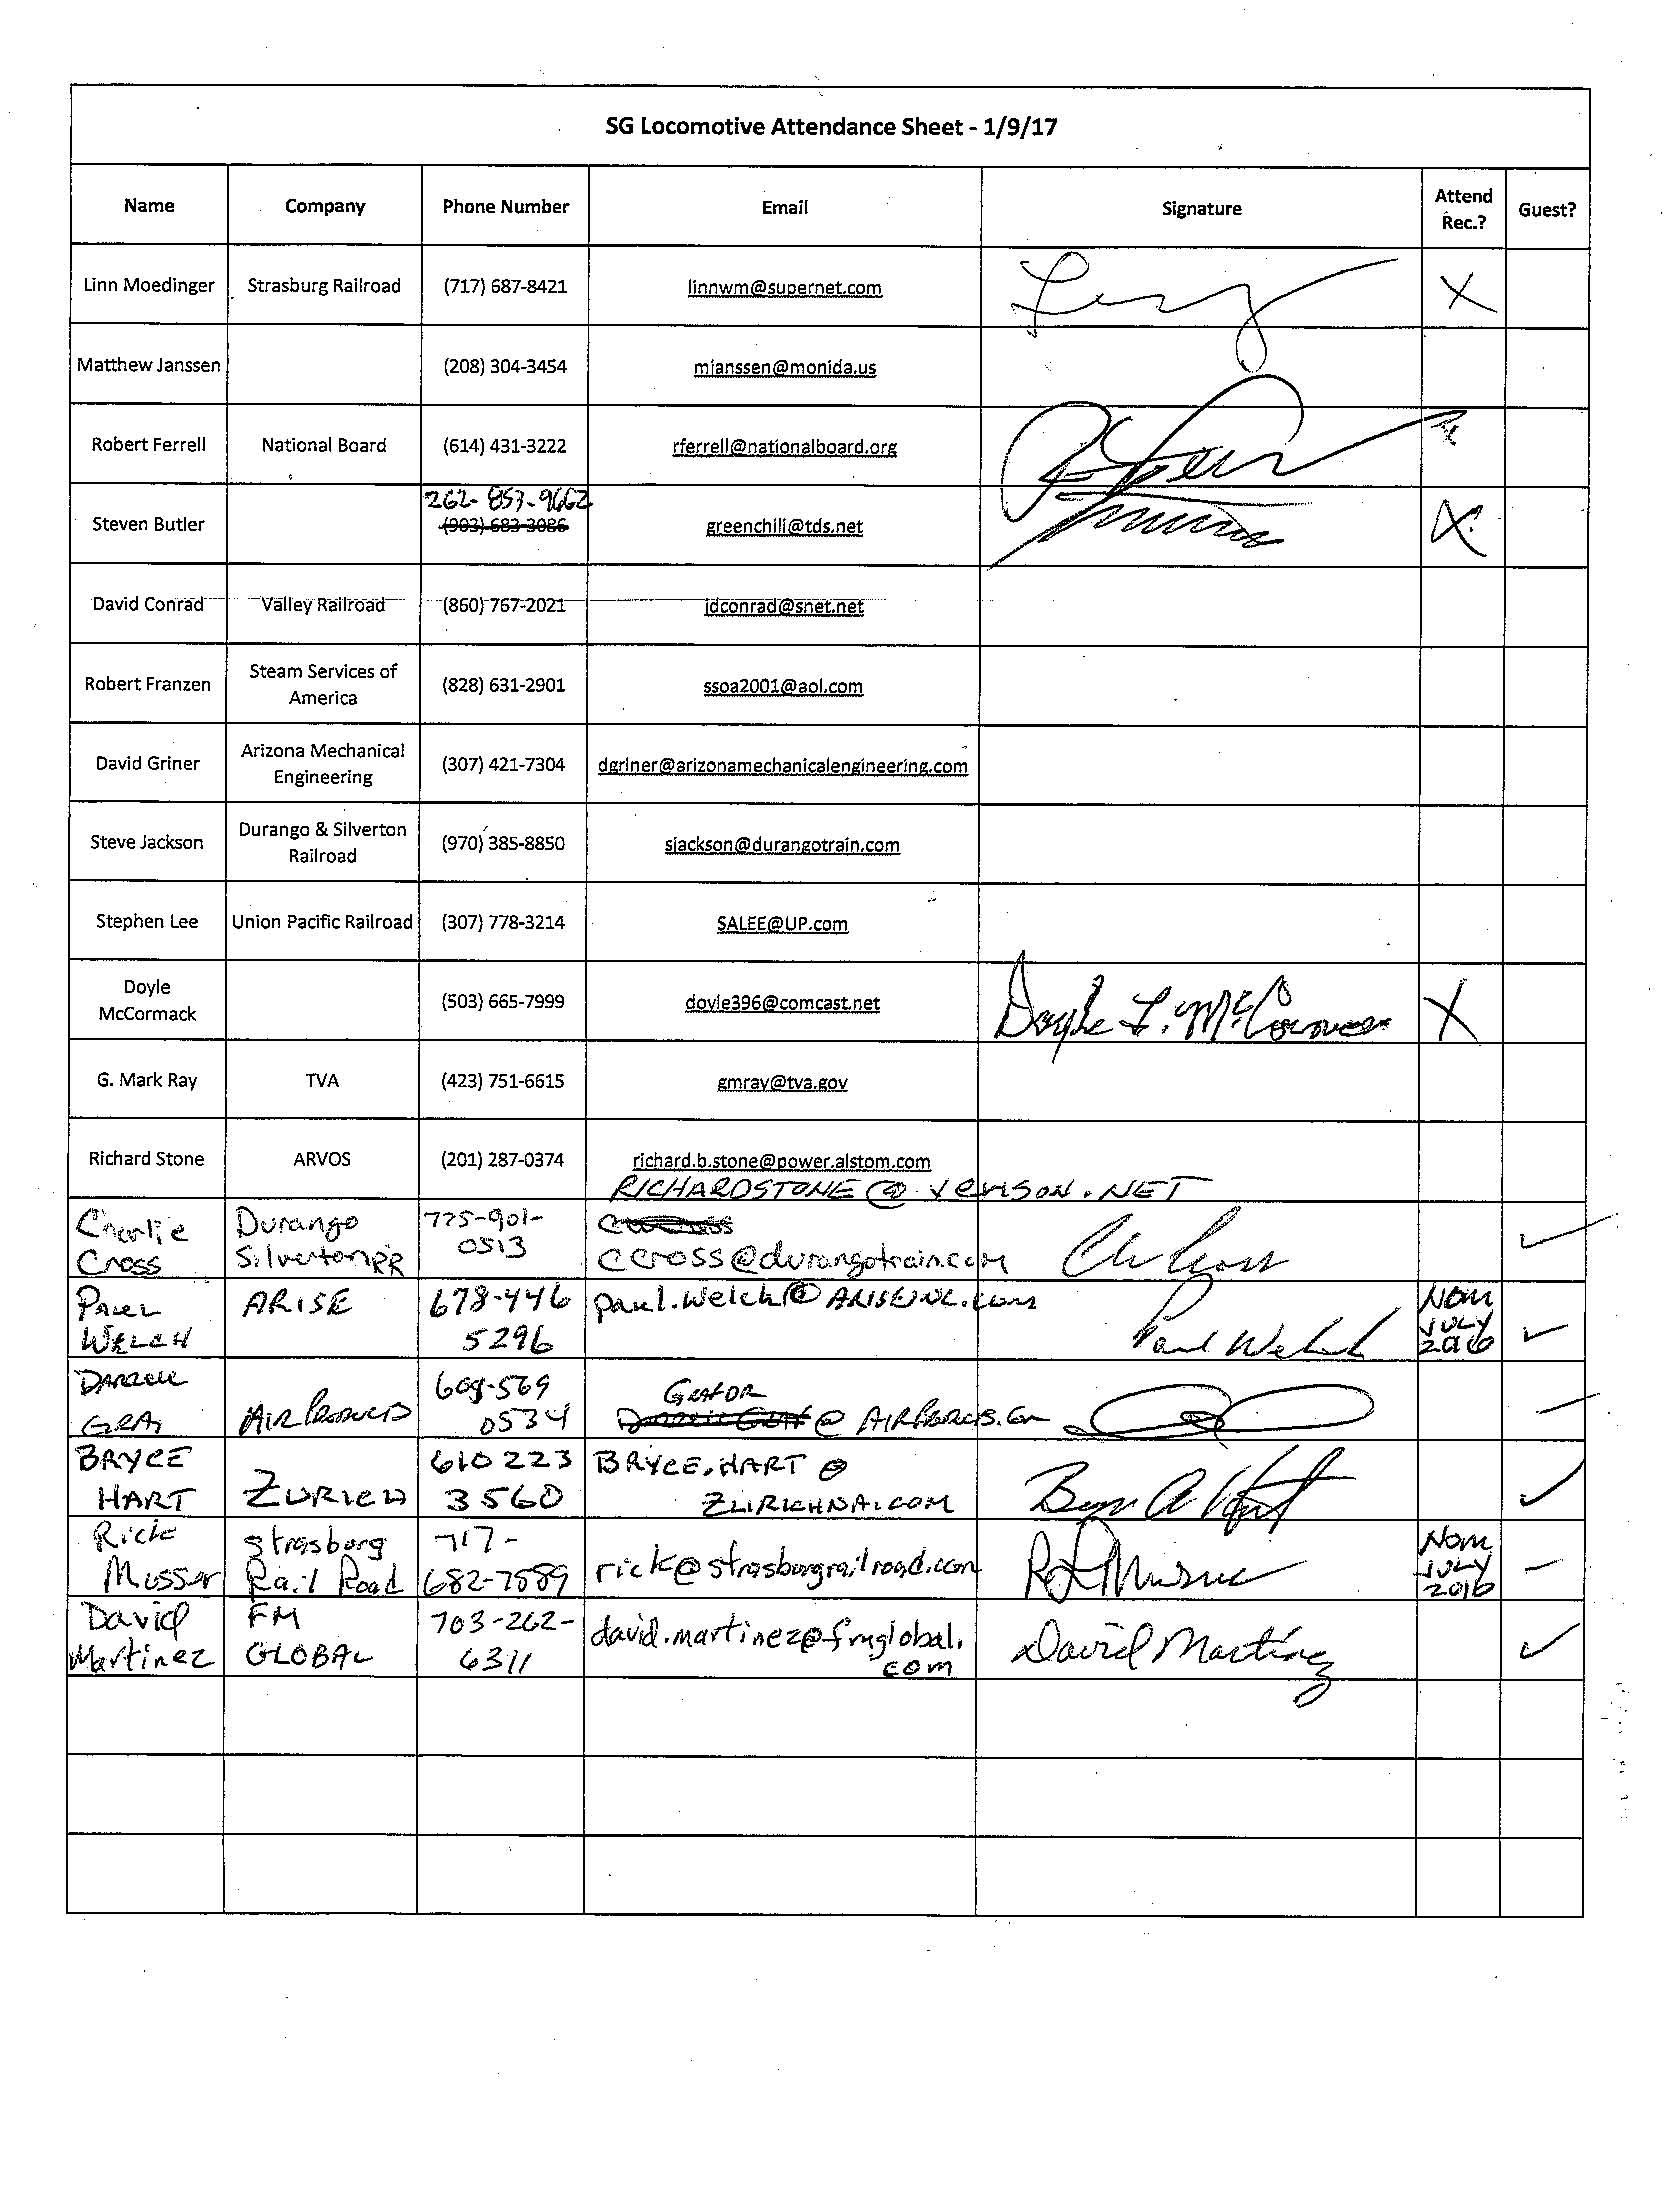 SG Locomotive Attendance Sheet - 1/9/17
Name Company Phone Number Email Signature Attend Rec.? Guest?
Linn Moedinger Strasburg Railroad (717) 687-8421 linnwm@supernet.com X
Matthew Janssen (208) 304-3454 mjanssen@monida.us
Robert Ferrell National Board (614) 431-3222 rferrell@nationalboard.org
262-857-9662
Steven Butler (903) 683-3086 greenchili@tds.net X
David Conrad Valley Railroad (860) 767-2021 jdconrad@snet.net
Robert Franzen Steam Services of America (828) 631-2901 ssoa2001@aol.com
David Griner Arizona Mechanical Engineering (307) 421-7304 dgriner@arizonamechanicalengineering.com
Steve Jackson Durango & Silverton Railroad (970) 385-8850 sjackson@durangotrain.com
Stephen Lee Union Pacific Railroad (307) 778-3214 SALEE@UP.com
Doyle McCormack (503) 665-7999 doyle396@comcast.net Doyle L. McCormack X
G. Mark Ray TVA (423) 751-6615 gmray@tva.gov
Richard Stone ARVOS (201) 287-0374 richard.b.stone@power.alstom.com
RICHARDSTONE @ verison.NET
Charlie Cross Durango Silverton RR 775-901-0513 ccross@durangotrain.com ✓
PAUL WELCH ARISE 678-446 5296 paul.welch@ARISEINC.com Paul Welch NOM JULY 2016 ✓
DARRELL GRAY AIR PRODUCTS 609-569 0534
BRYCE HART ZURICH 610 223 3560 BRYCE.HART @ ZURICHNA.COM Bryce A Hart ✓
Rick Musser Strasburg Rail Road 717-682-7589 rick@strasburgrailroad.com NOM JULY 2016
David Martinez FM GLOBAL 703-262-6311 david.martinez@fmglobal.com David Martinez ✓